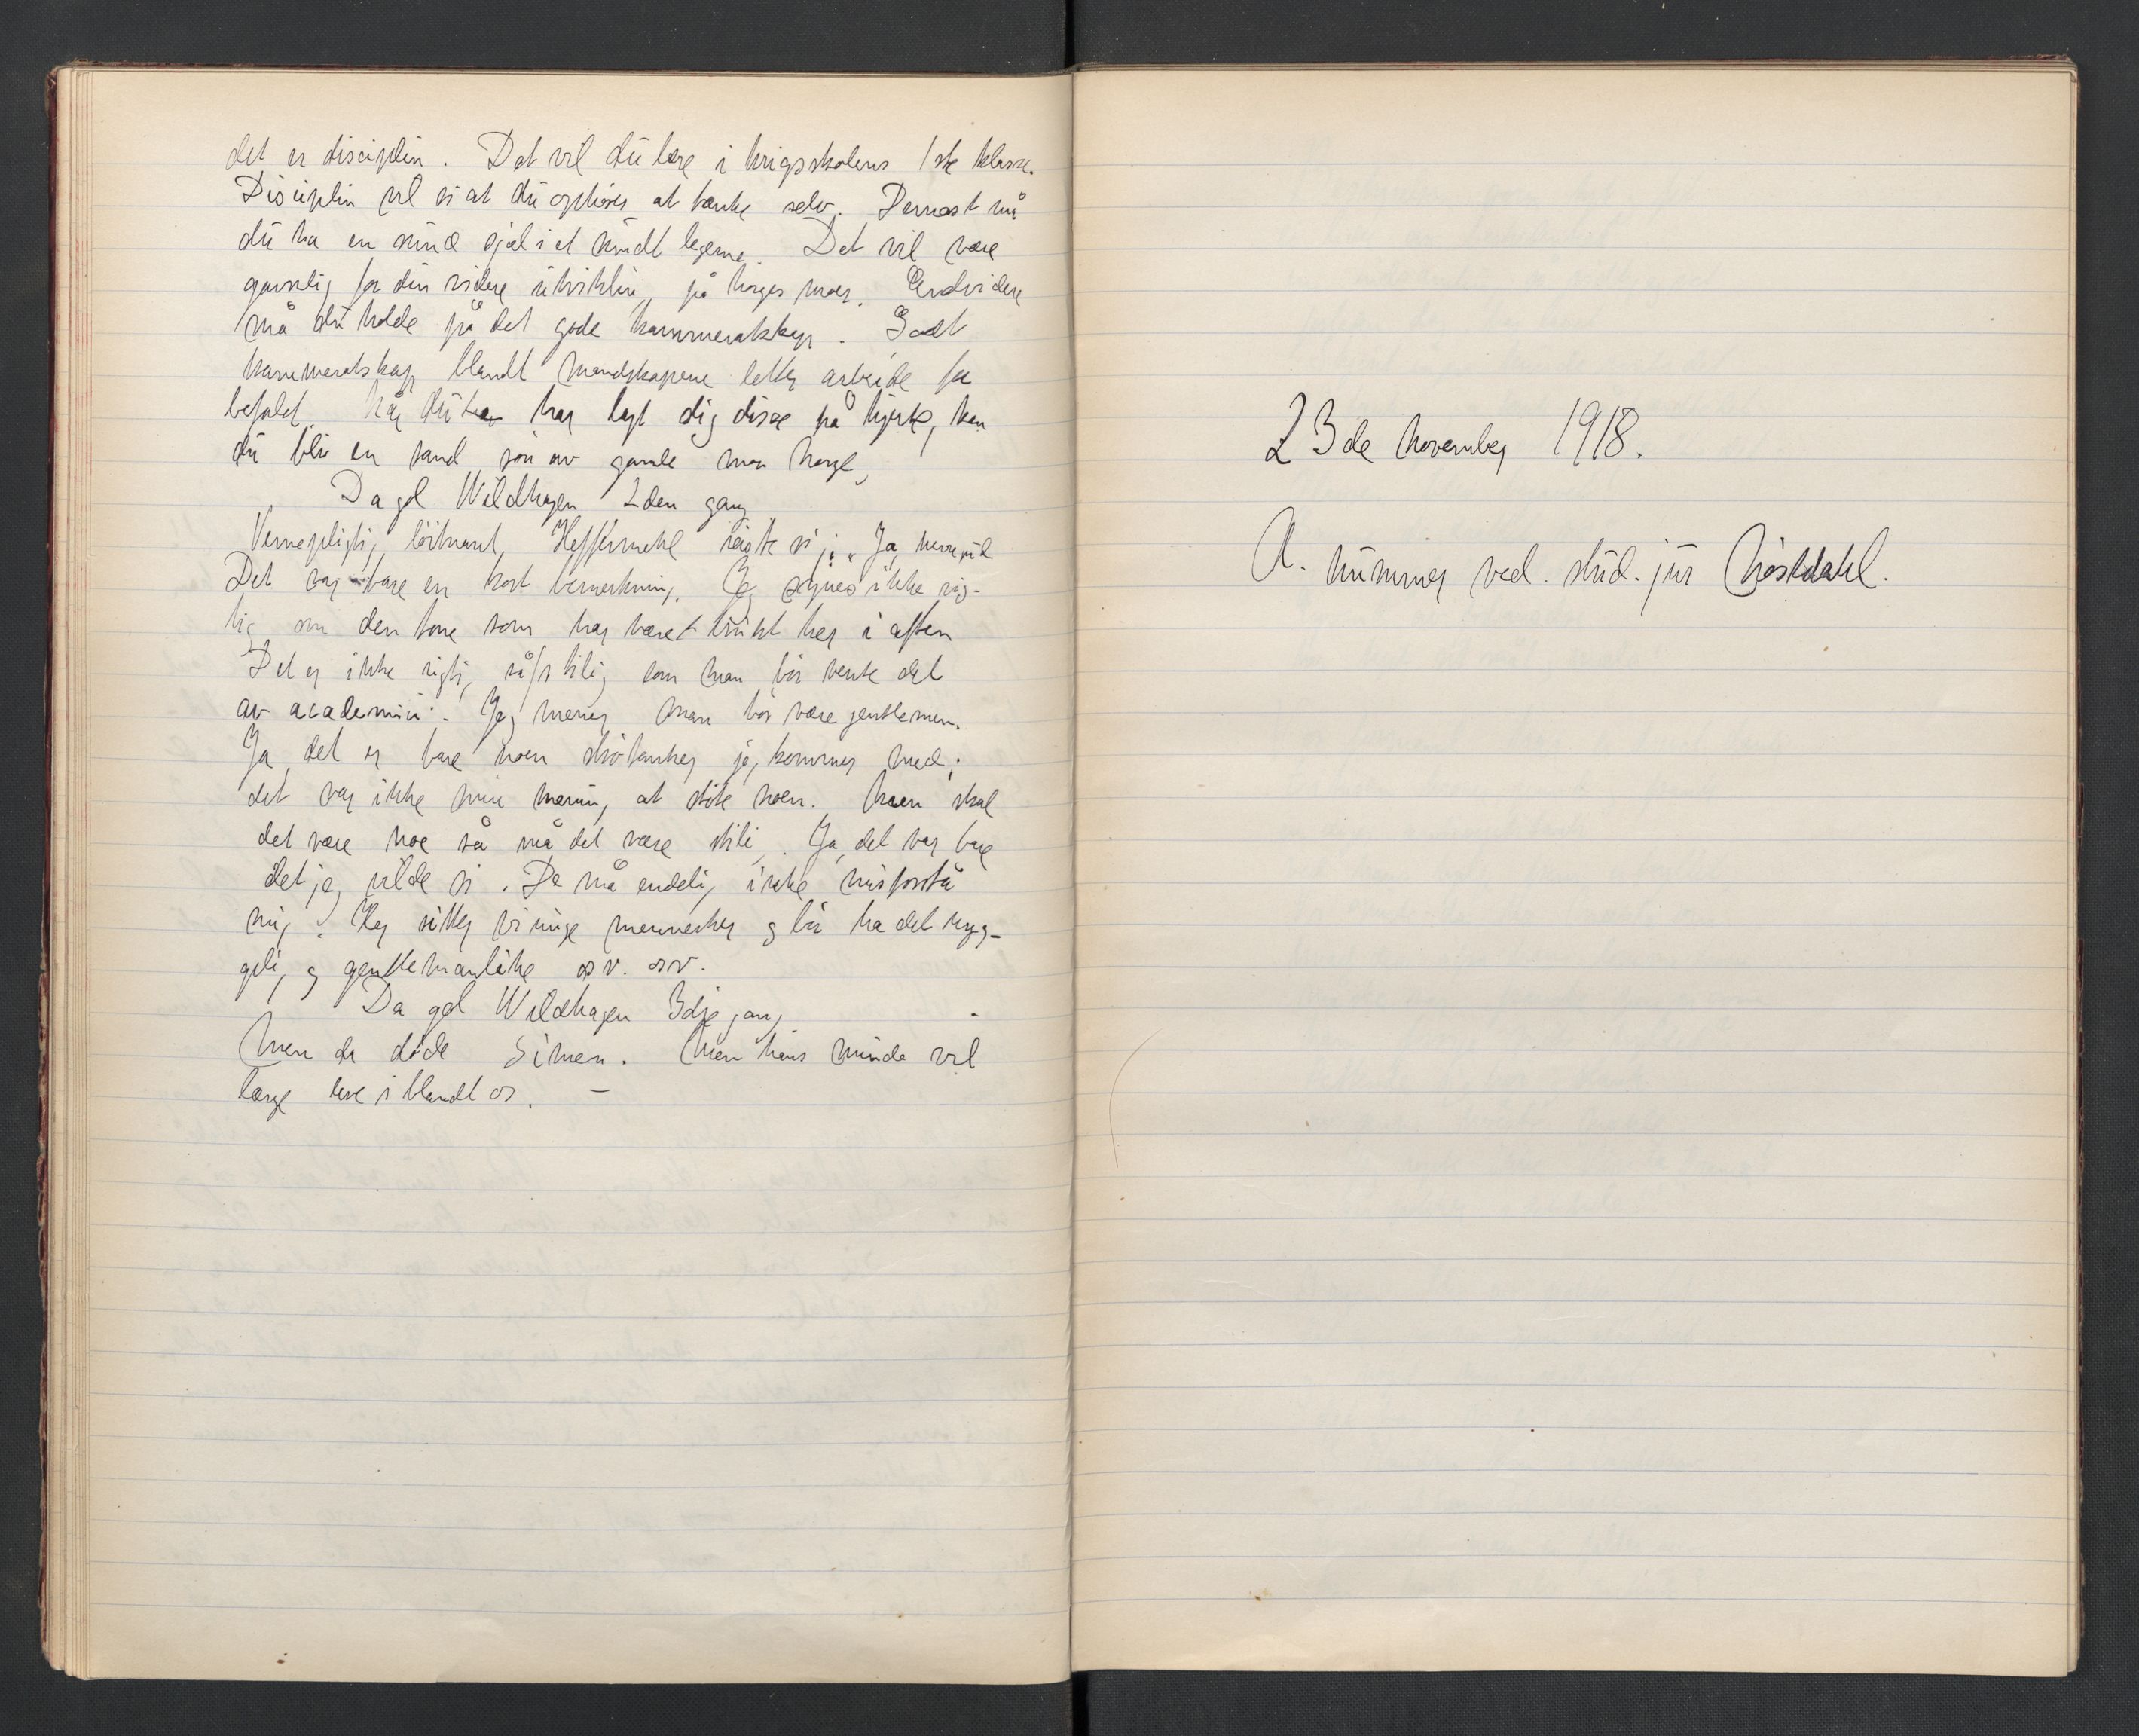 det er disciplin. Det vil du lære i krigsskolens 1ste klasse.
Disciplin vil si at du ophører at tænke selv. Dernæst må
du ha en sund sjæl i et sundt legeme. Det vil være
gavnlig for din videre utvikling på Norges moer. Endvidere
må du holde på det gode kammeratskap. Godt
kammeratskap blandt mandskapene letter arbeide for
befalet. Når du har lagt dig disse på hjerte, kan
du bli en sand søn av gamle mor Norge,
Da gol Wildhagen 2den gang
Vernepligtig løitnant, Heffermehl reiste sig: „Ja
Det var bare en kort bemerkning. Jeg synes ikke rig-
tig om den tone som har været brukt her i aften
Det er ikke rigtig så stilig som man bør vente det
av academici. Jeg mener man bør være gentlemen.
Ja, det er bare noen strøtanker jeg kommer med;
det var ikke min mening at støte noen. Men skal
det være noe så må det være stilig. Ja, det var bare
det jeg vilde si. De må endelig ikke misforstå
mig. Her sitter vi unge mennesker og bør ha det hyg-
gelig og gentlemanlike osv. osv.
Da gol Wildhagen 3dje gang
Men da døde Simen. Men hans minde vil
længe leve iblandt os. —
23de November 1918.
A. nummer ved. stud. jur Høstdahl.